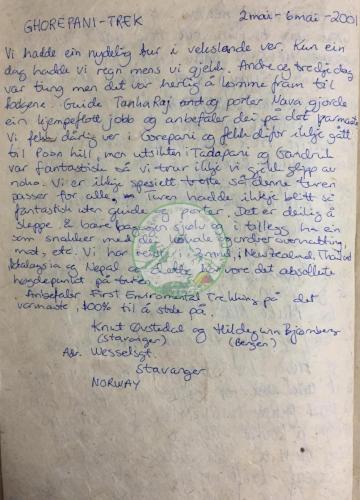 GHOREPANI-TREK 2.mai-6.mai-2001
Vi hadde ein nydelig tur i vekslande ver. Kun ein
dag hadde vi regn mens vi gjekk. Andre og tredje dag
var tung men det var herlig å komme fram til
Guide Tanka Raj og porter Nava gjorde
ein kjempeflott jobb og anbefaler dei på det varmaste.
Vi fekk dårlig ver i Gorepani og fekk difor ikkje gått
til Poon hill, men utsikten i Tadapani og Gandruk
var fantastisk så vi trur ikkje vi gjekk glipp av
noko. Vi er ikkje spesielt så denne turen
passer for alle. Turen hadde ikkje blitt så
fantastisk uten guide og porter. Det er deilig å
sleppe å bære sjølv og i tillegg ha ein
som snakker med dei lokale og ordner overnatting,
mat, etc. Vi har i 2 mnd, i New Zealand, Thailand
Malaysia og Nepal og dette vore det absolutte
høgdepunkt på turen.
Anbefaler First Enviromental Trekking på det
varmaste, 100% til å stole på.
Knut og Hildegunn Bjørnberg
(Stavanger) (Bergen)
Adr. Wesselsgt.
Stavanger
NORWAY